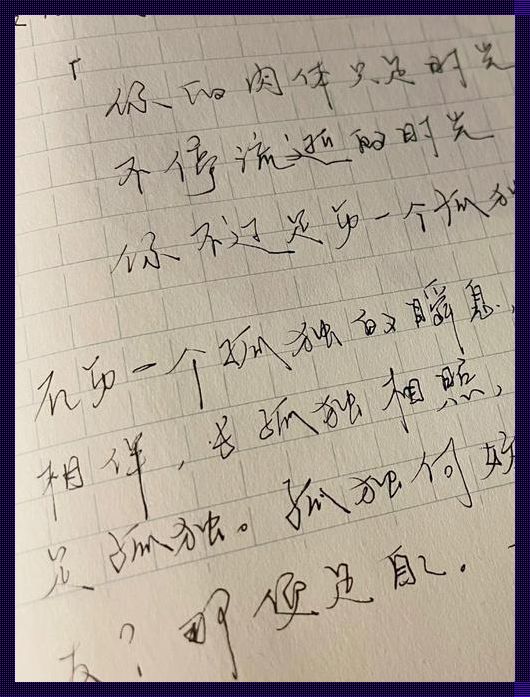 「你的肉体只是时光
不停流逝的时光
你不过是每一个孤独
在每一个孤独的瞬息,
相伴,与孤独相照,
是孤独。孤独何好
友?那便是自己.